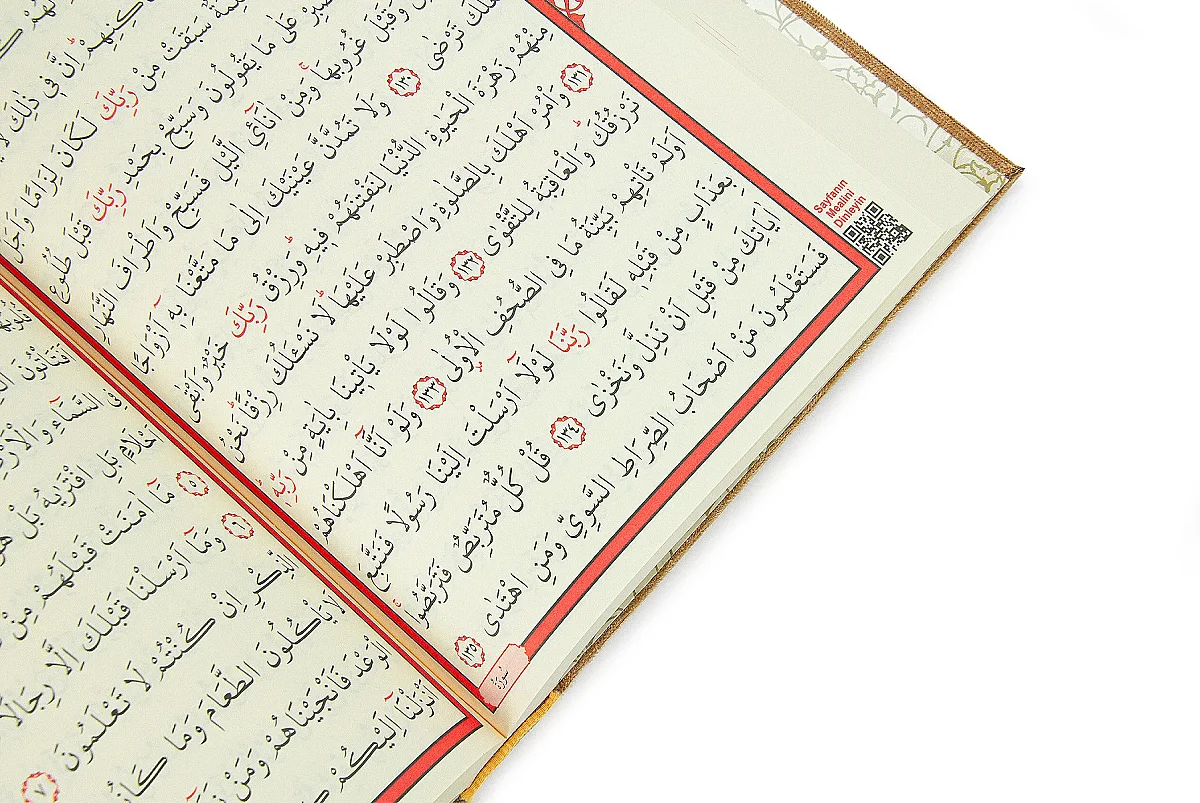 كِنِهِمْ اِنَّ فٖي ذٰلِكَ
سَبَقَتْ مِنْ رَبِّكَ لَكَانَ لِزَامًا وَاَجَلٌ
عَلٰى مَا يَقُولُونَ وَسَبِّحْ بِحَمْدِ رَبِّكَ قَبْلَ طُلُوعِ
وَقَبْلَ غُرُوبِهَا وَمِنْ اٰنَآئِ الَّيْلِ فَسَبِّحْ وَاَطْرَافَ النَّهَارِ
لَعَلَّكَ تَرْضٰى ١٣٠ وَلَا تَمُدَّنَّ عَيْنَيْكَ اِلٰى مَا مَتَّعْنَا بِهٖٓ اَزْوَاجًا
مِنْهُمْ زَهْرَةَ الْحَيٰوةِ الدُّنْيَا لِنَفْتِنَهُمْ فٖيهِ وَرِزْقُ رَبِّكَ خَيْرٌ وَاَبْقٰى
١٣١ وَاْمُرْ اَهْلَكَ بِالصَّلٰوةِ وَاصْطَبِرْ عَلَيْهَا لَا نَسْـَٔلُكَ رِزْقًا نَحْنُ
نَرْزُقُكَ وَالْعَاقِبَةُ لِلتَّقْوٰى ١٣٢ وَقَالُوا لَوْلَا يَاْتٖينَا بِاٰيَةٍ مِنْ رَبِّهٖ
اَوَلَمْ تَاْتِهِمْ بَيِّنَةُ مَا فِي الصُّحُفِ الْاُولٰى ١٣٣ وَلَوْ اَنَّٓا اَهْلَكْنَاهُمْ
بِعَذَابٍ مِنْ قَبْلِهٖ لَقَالُوا رَبَّنَا لَوْلَٓا اَرْسَلْتَ اِلَيْنَا رَسُولًا فَنَتَّبِعَ
اٰيَاتِكَ مِنْ قَبْلِ اَنْ نَذِلَّ وَنَخْزٰى ١٣٤ قُلْ كُلٌّ مُتَرَبِّصٌ فَتَرَبَّصُوا
فَسَتَعْلَمُونَ مَنْ اَصْحَابُ الصِّرَاطِ السَّوِيِّ وَمَنِ اهْتَدٰى ١٣٥
سُورَةُ
Sayfanın
Mealini
Dinleyin
اَفَتَاْتُونَ
فِي السَّمَٓاءِ وَالْاَرْضِ
اَحْلَامٍ بَلِ افْتَرٰيهُ بَلْ هُوَ
٥ مَٓا اٰمَنَتْ قَبْلَهُمْ مِنْ
٦ وَمَٓا اَرْسَلْنَا قَبْلَكَ اِلَّا رِجَالًا
الذِّكْرِ اِنْ كُنْتُمْ لَا تَعْلَمُونَ ٧
لَا يَاْكُلُونَ الطَّعَامَ وَمَا كَانُوا
الْوَعْدَ فَاَنْجَيْنَاهُمْ وَمَنْ
اَنْزَلْنَٓا اِلَيْكُمْ